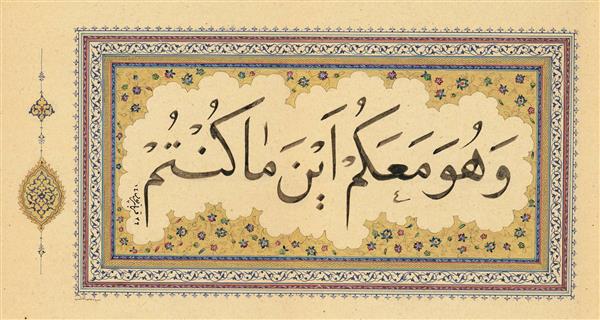 وَهُوَ مَعَكُمْ أَيْنَ مَا كُنْتُمْ
٤